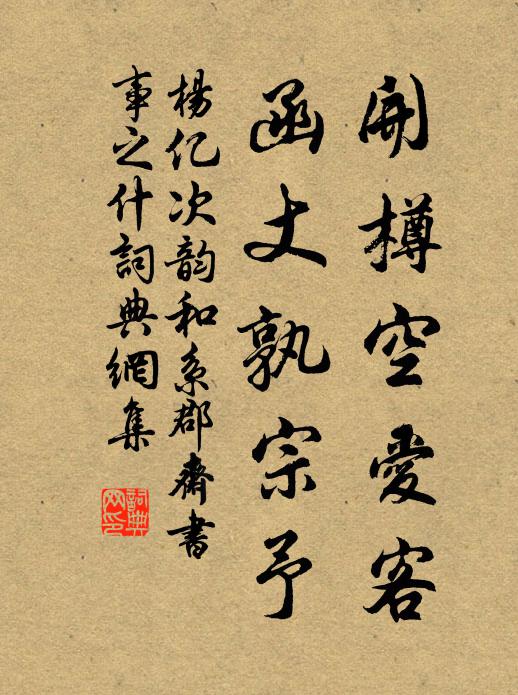 開樽空愛客
函丈孰宗予
楊億次韵和系郡齋書
事之什詞典網集
詞典
网印